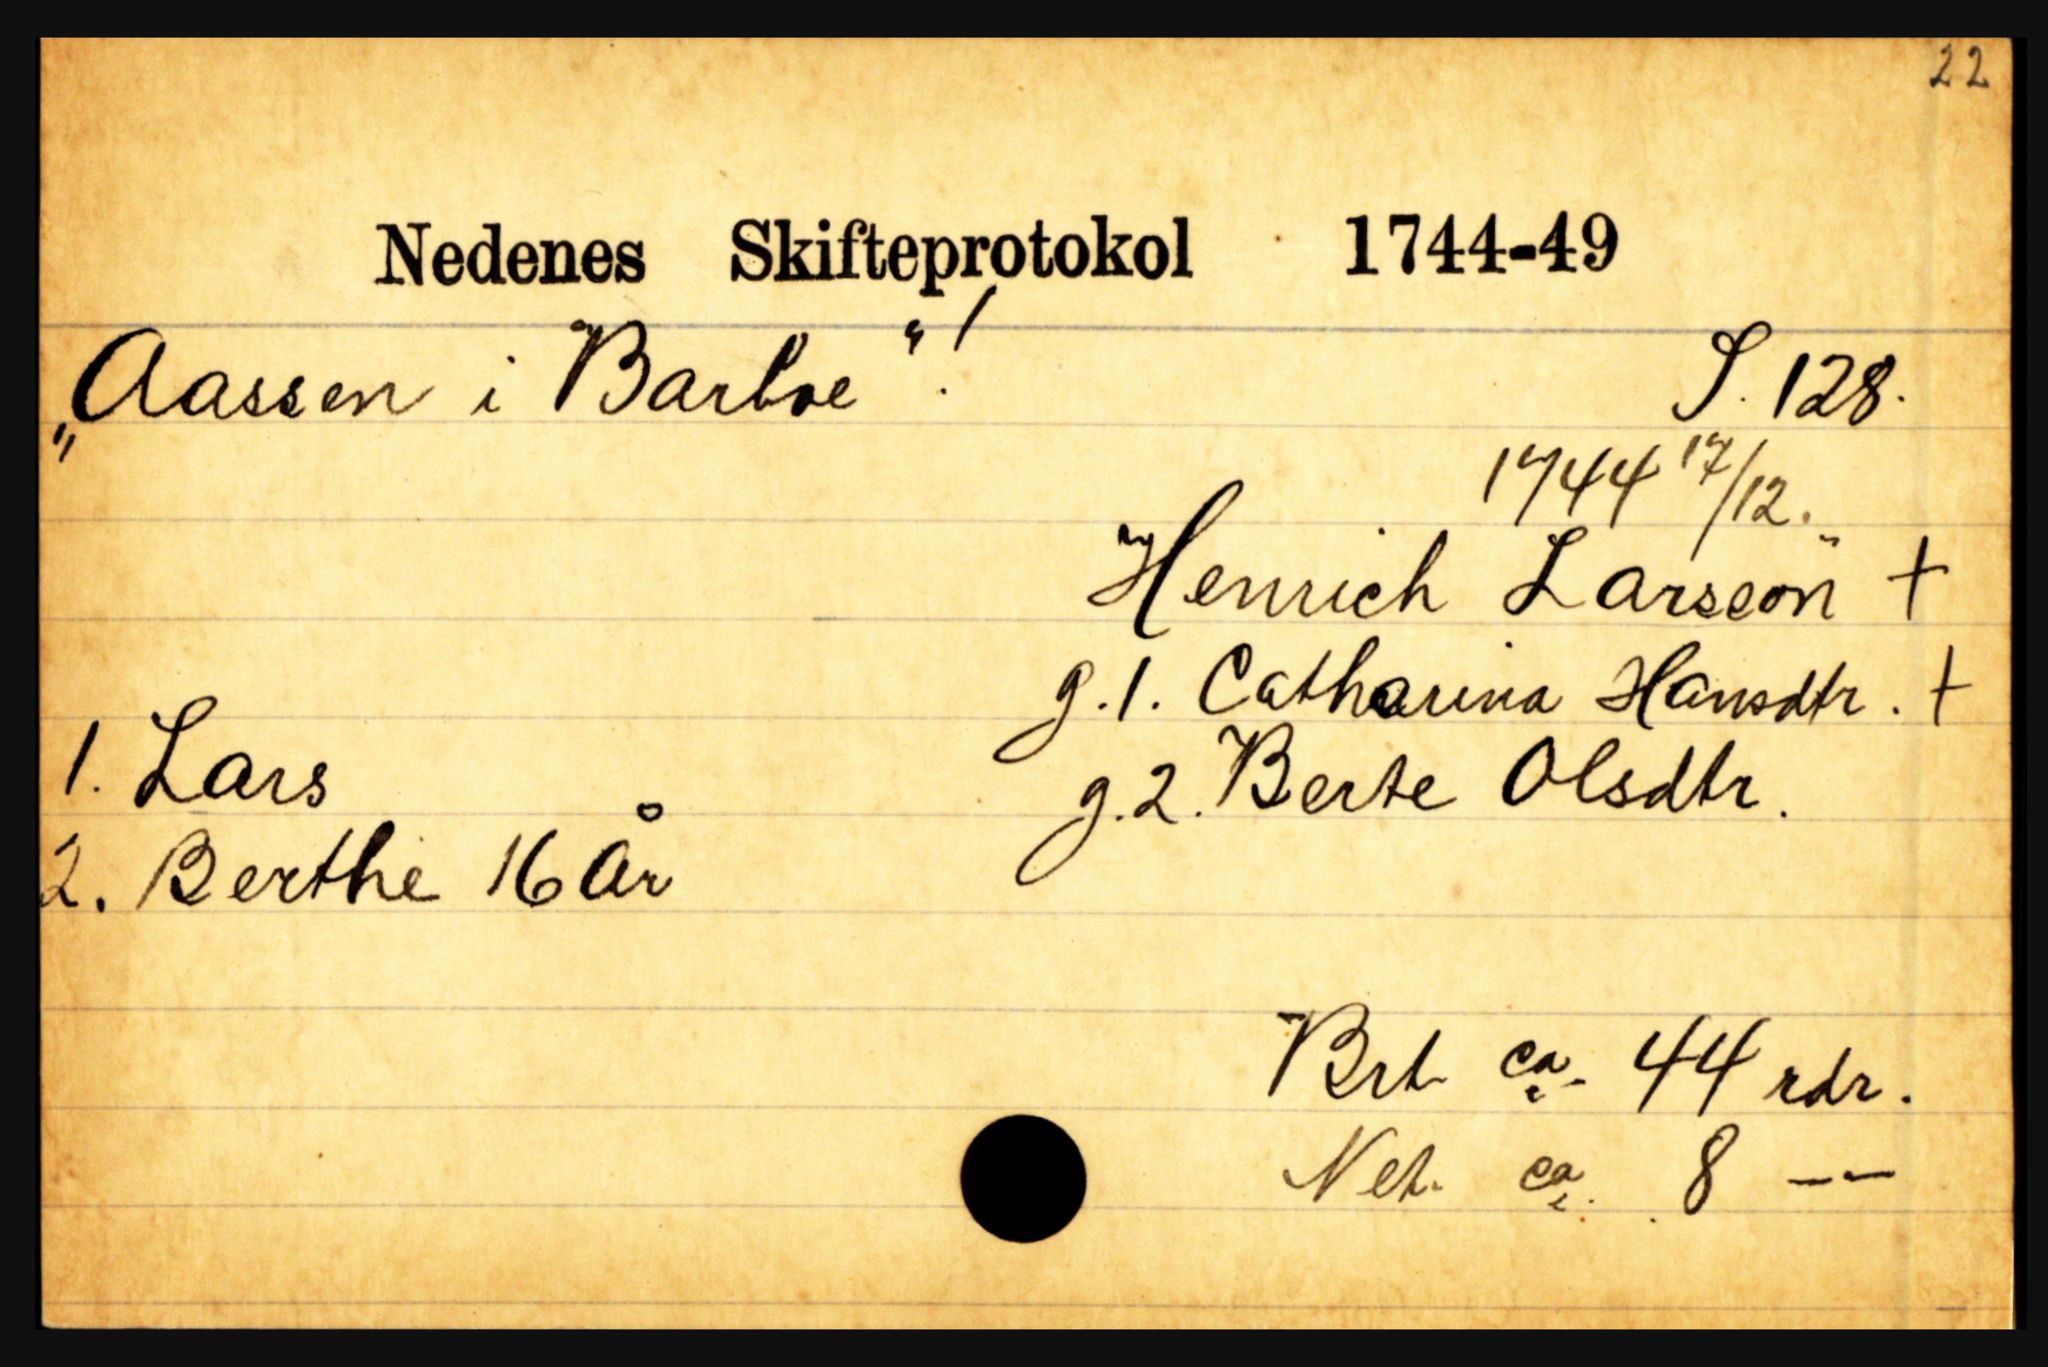 22
Nedenes Skifteprotokol 1744-49
„Aassen i Barboe"!
S. 128.
1744 17/12.
Henrich Larsøn +
g.1. Catharina Hansdtr. +
1. Lars
g.2. Berte Olsdtr.
2. Berthe 16 År
Brt ca. 44 rdr.
Net. ca. 8 —-